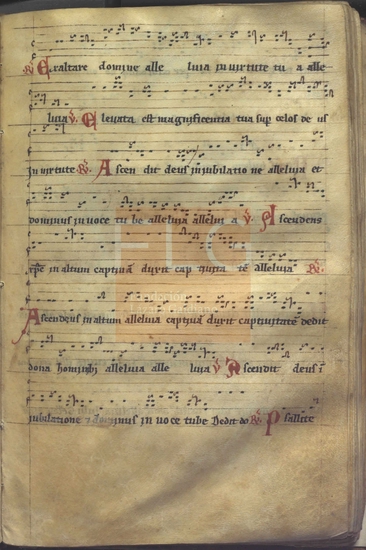 ℟. Exaltare domine alle luia in virtute tu a alle
luia ℣. Eleuata est magnificentia tua sup celos de us
In uirtute ℟. Ascen dit deus in iubilatio ne alleluia et
dominus in uoce tu be alleluia allelui a ℣. Ascendens
xpc in altum captiuā duxit cap tiuita tē alleluia ℟.
Ascendens in altum alleluia captiuā duxit captiuitatē dedit
dona hominib; alleluia alle luia ℣ Ascendit deus ī
iubilatione & dominus in uoce tube Dedit do ℟. Psallite